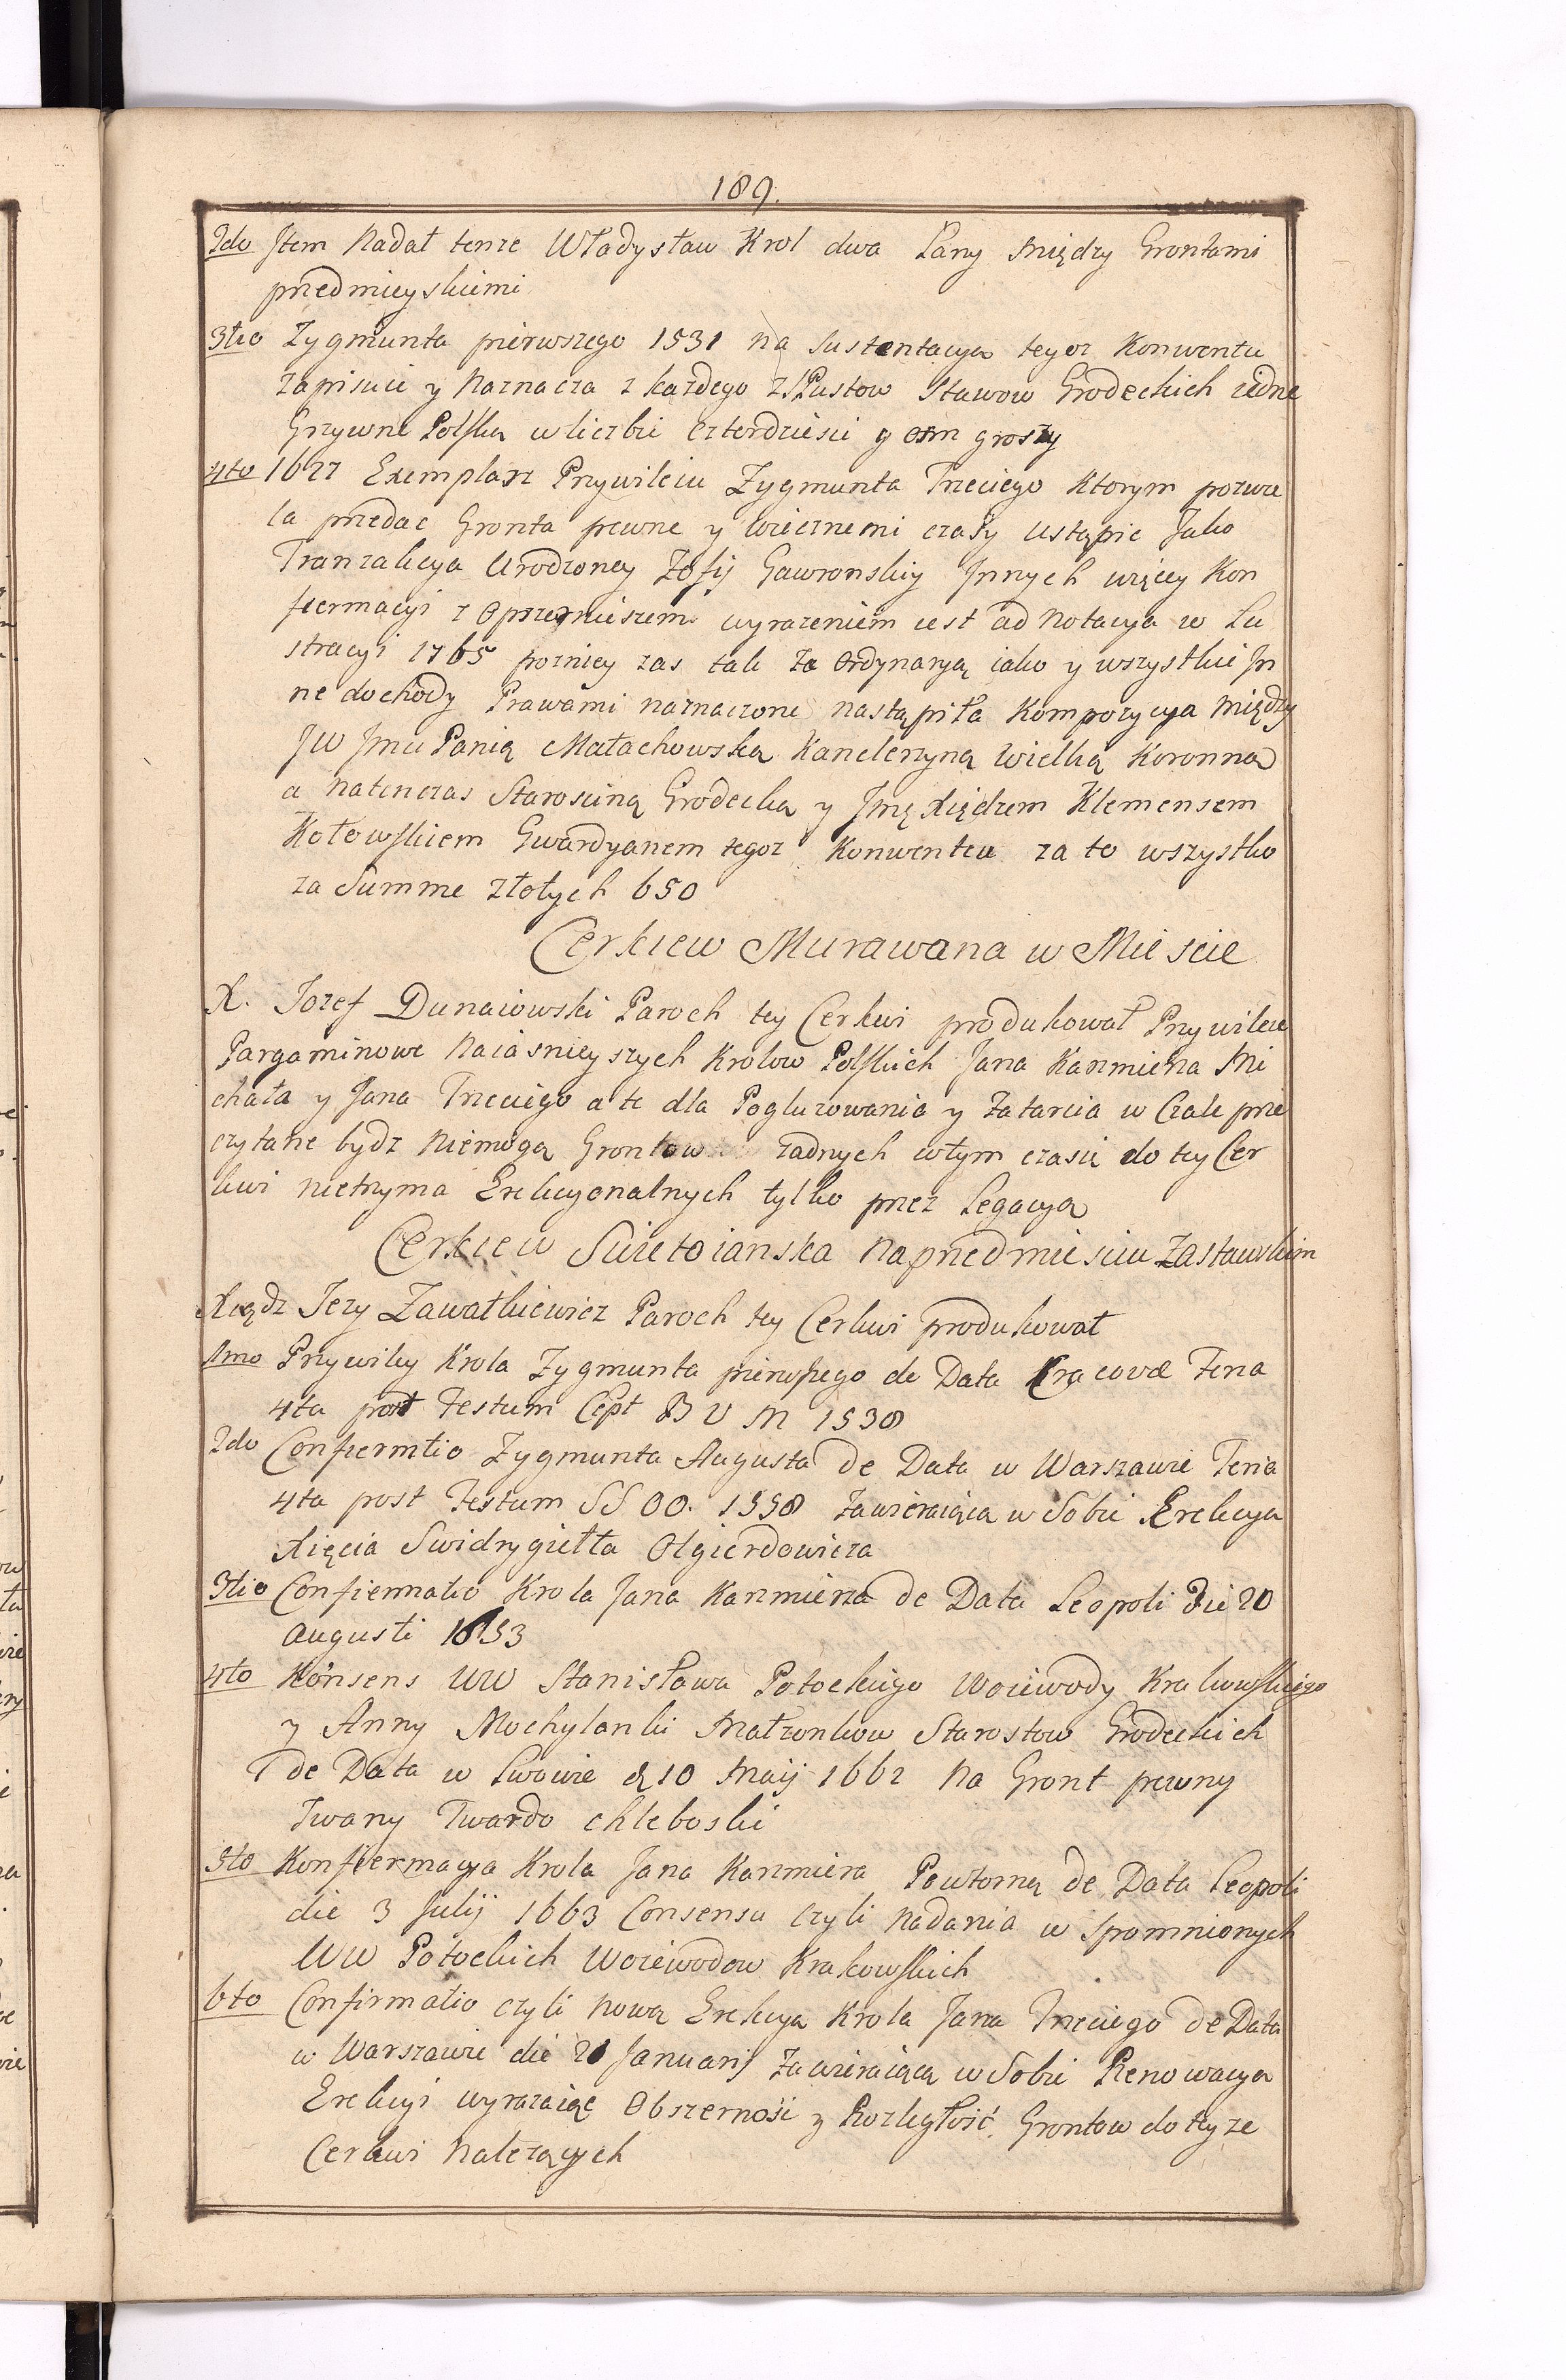 189.
2do Item Nadał tenze Władysław Krol dwa Łany między Grontami
przedmieyskiemi
3tio Zygmunta pierwszego 1531 na Sustentacya tegoz Konwentu
zapisuie y Naznacza z każdego zSPustow Stawow Grodeckich iedne
Grzywne Polską wliczbie czterdziesci y osm groszy
4to 1622 Exemplarz Przywileiu Zygmunta Trzeciego Ktorym pozwa
la przedac Gronta pewne y wiecznemi czasy ustąpic Jako
Tranzakcya Urodzoney Zofij Gawronskiy Innych więcey Kon
fiermacyi z Opszerniszem wyrazeniem iest adnotacya w Lu
stracyi 1765 pozniey zas tak za Ordynaryą iako y wszystkie In
ne dochody Prawami naznaczone nastąpiła Kompozycya między
JW Jmci Panią Małachowską Kanclerzyną Wielką Koronną
a natenczas Starosciną Grodecką y Jmę Xiędzem Klemensem
Kotowskiem Gwardyanem tegoz Konwentu za to wszystko
za Summe złotych 650
Cerkiew Murawana w Miescie
X. Jozef Dunaiowski Paroch tey Cerkwi produkował Przywileie
Pargaminowe Naiasnieyszych Krolow Polskich Jana Kazmierza Mi
chała y Jana Trzeciego a te dla Pogluzowania y Zatarcia w Czale prze
czytane bydz Niemogą Grontow zadnych wtym czasie do tey Cer
kwi nietrzyma Erekcyonalnych tylko przez Legacyą
Cerkiew Swietoianska Naprzedmiesciu Zastawskim
Xiądz Jezy Zawałkiewicz Paroch tey Cerkwi produkował
1mo Przywiley Krola Zygmunta pierwszego de Data Cracoviæ Feria
4ta post Festum Cept B V M 1538
2do Confiermtio Zygmunta Augusta de Data w Warszawie Feria
4ta post Festum SS OO. 1558 Zawieraiąca w Sobie Erekcya
Xięcia Swidrygiełła Olgierdowicza
3tio Confiermatio Krola Jana Kazmierza de Data Leopoli Die 20
Augusti 1653
4to Konsens WW Stanisława Potockiego Woiewody Krakowskiego
y Anny Mochylanki Małzonkow Starostow Grodeckich
de Data w Lwowie d 10 Maij 1662 Na Gront pewny
Zwany Twardo chleboski
5to Konfiermacya Krola Jana Kazmierza Powtorną de Data Leopoli
die 3 Julij 1663 Consensu czyli Nadania w Spomnionych
WW Potockich Woiewodow Krakowskich
6to Confirmatio czyli Nową Erekcya Krola Jana Trzeciego de Data
w Warszawie die 20 Januarij Zawieraiącą w Sobie Renowacya
Erekcyi wyrazaiąc Obszernosi y Rozległość Grontow do teyze
Cerkwi Nalezących